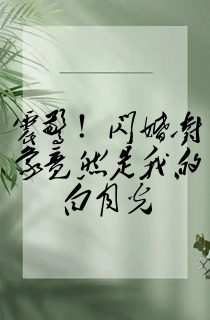 震驚！闪婚對
象竟然是我的
白月光